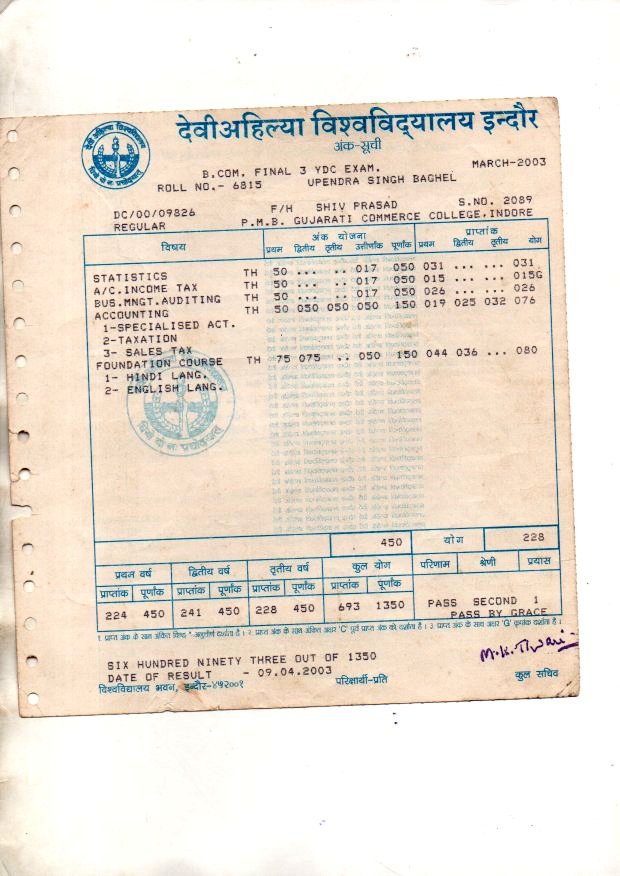 देवीअहिल्या विश्वविद्यालय इन्दौर
अंक-सूची
B.COM. FINAL 3 YDC EXAM. MARCH-2003
ROLL NO.- 6815 UPENDRA SINGH BAGHEL
DC/00/09826 F/H SHIV PRASAD S.NO. 2089
REGULAR P.M.B. GUJARATI COMMERCE COLLEGE,INDORE
विषय अंक योजना प्राप्तांक
प्रथम द्वितीय तृतीय उत्तीर्णांक पूर्णांक प्रथम द्वितीय तृतीय योग
STATISTICS TH 50 ... .. 017 050 031 ... ... 031
A/C.INCOME TAX TH 50 ... .. 017 050 015 ... ... 015G
BUS.MNGT.AUDITING TH 50 ... .. 017 050 026 ... ... 026
ACCOUNTING TH 50 050 050 050 150 019 025 032 076
1-SPECIALISED ACT.
2-TAXATION
3- SALES TAX
FOUNDATION COURSE TH 75 075 .. 050 150 044 036 ... 080
1- HINDI LANG.
2- ENGLISH LANG.
450 योग 228
प्रथम वर्ष द्वितीय वर्ष तृतीय वर्ष कुल योग परिणाम श्रेणी प्रयास
प्राप्तांक पूर्णांक प्राप्तांक पूर्णांक प्राप्तांक पूर्णांक प्राप्तांक पूर्णांक
224 450 241 450 228 450 693 1350 PASS SECOND 1
PASS BY GRACE
SIX HUNDRED NINETY THREE OUT OF 1350
DATE OF RESULT - 09.04.2003
M.K. Tiwari
विश्वविद्यालय भवन, इन्दौर-४५२००१ परिक्षार्थी-प्रति कुल सचिव